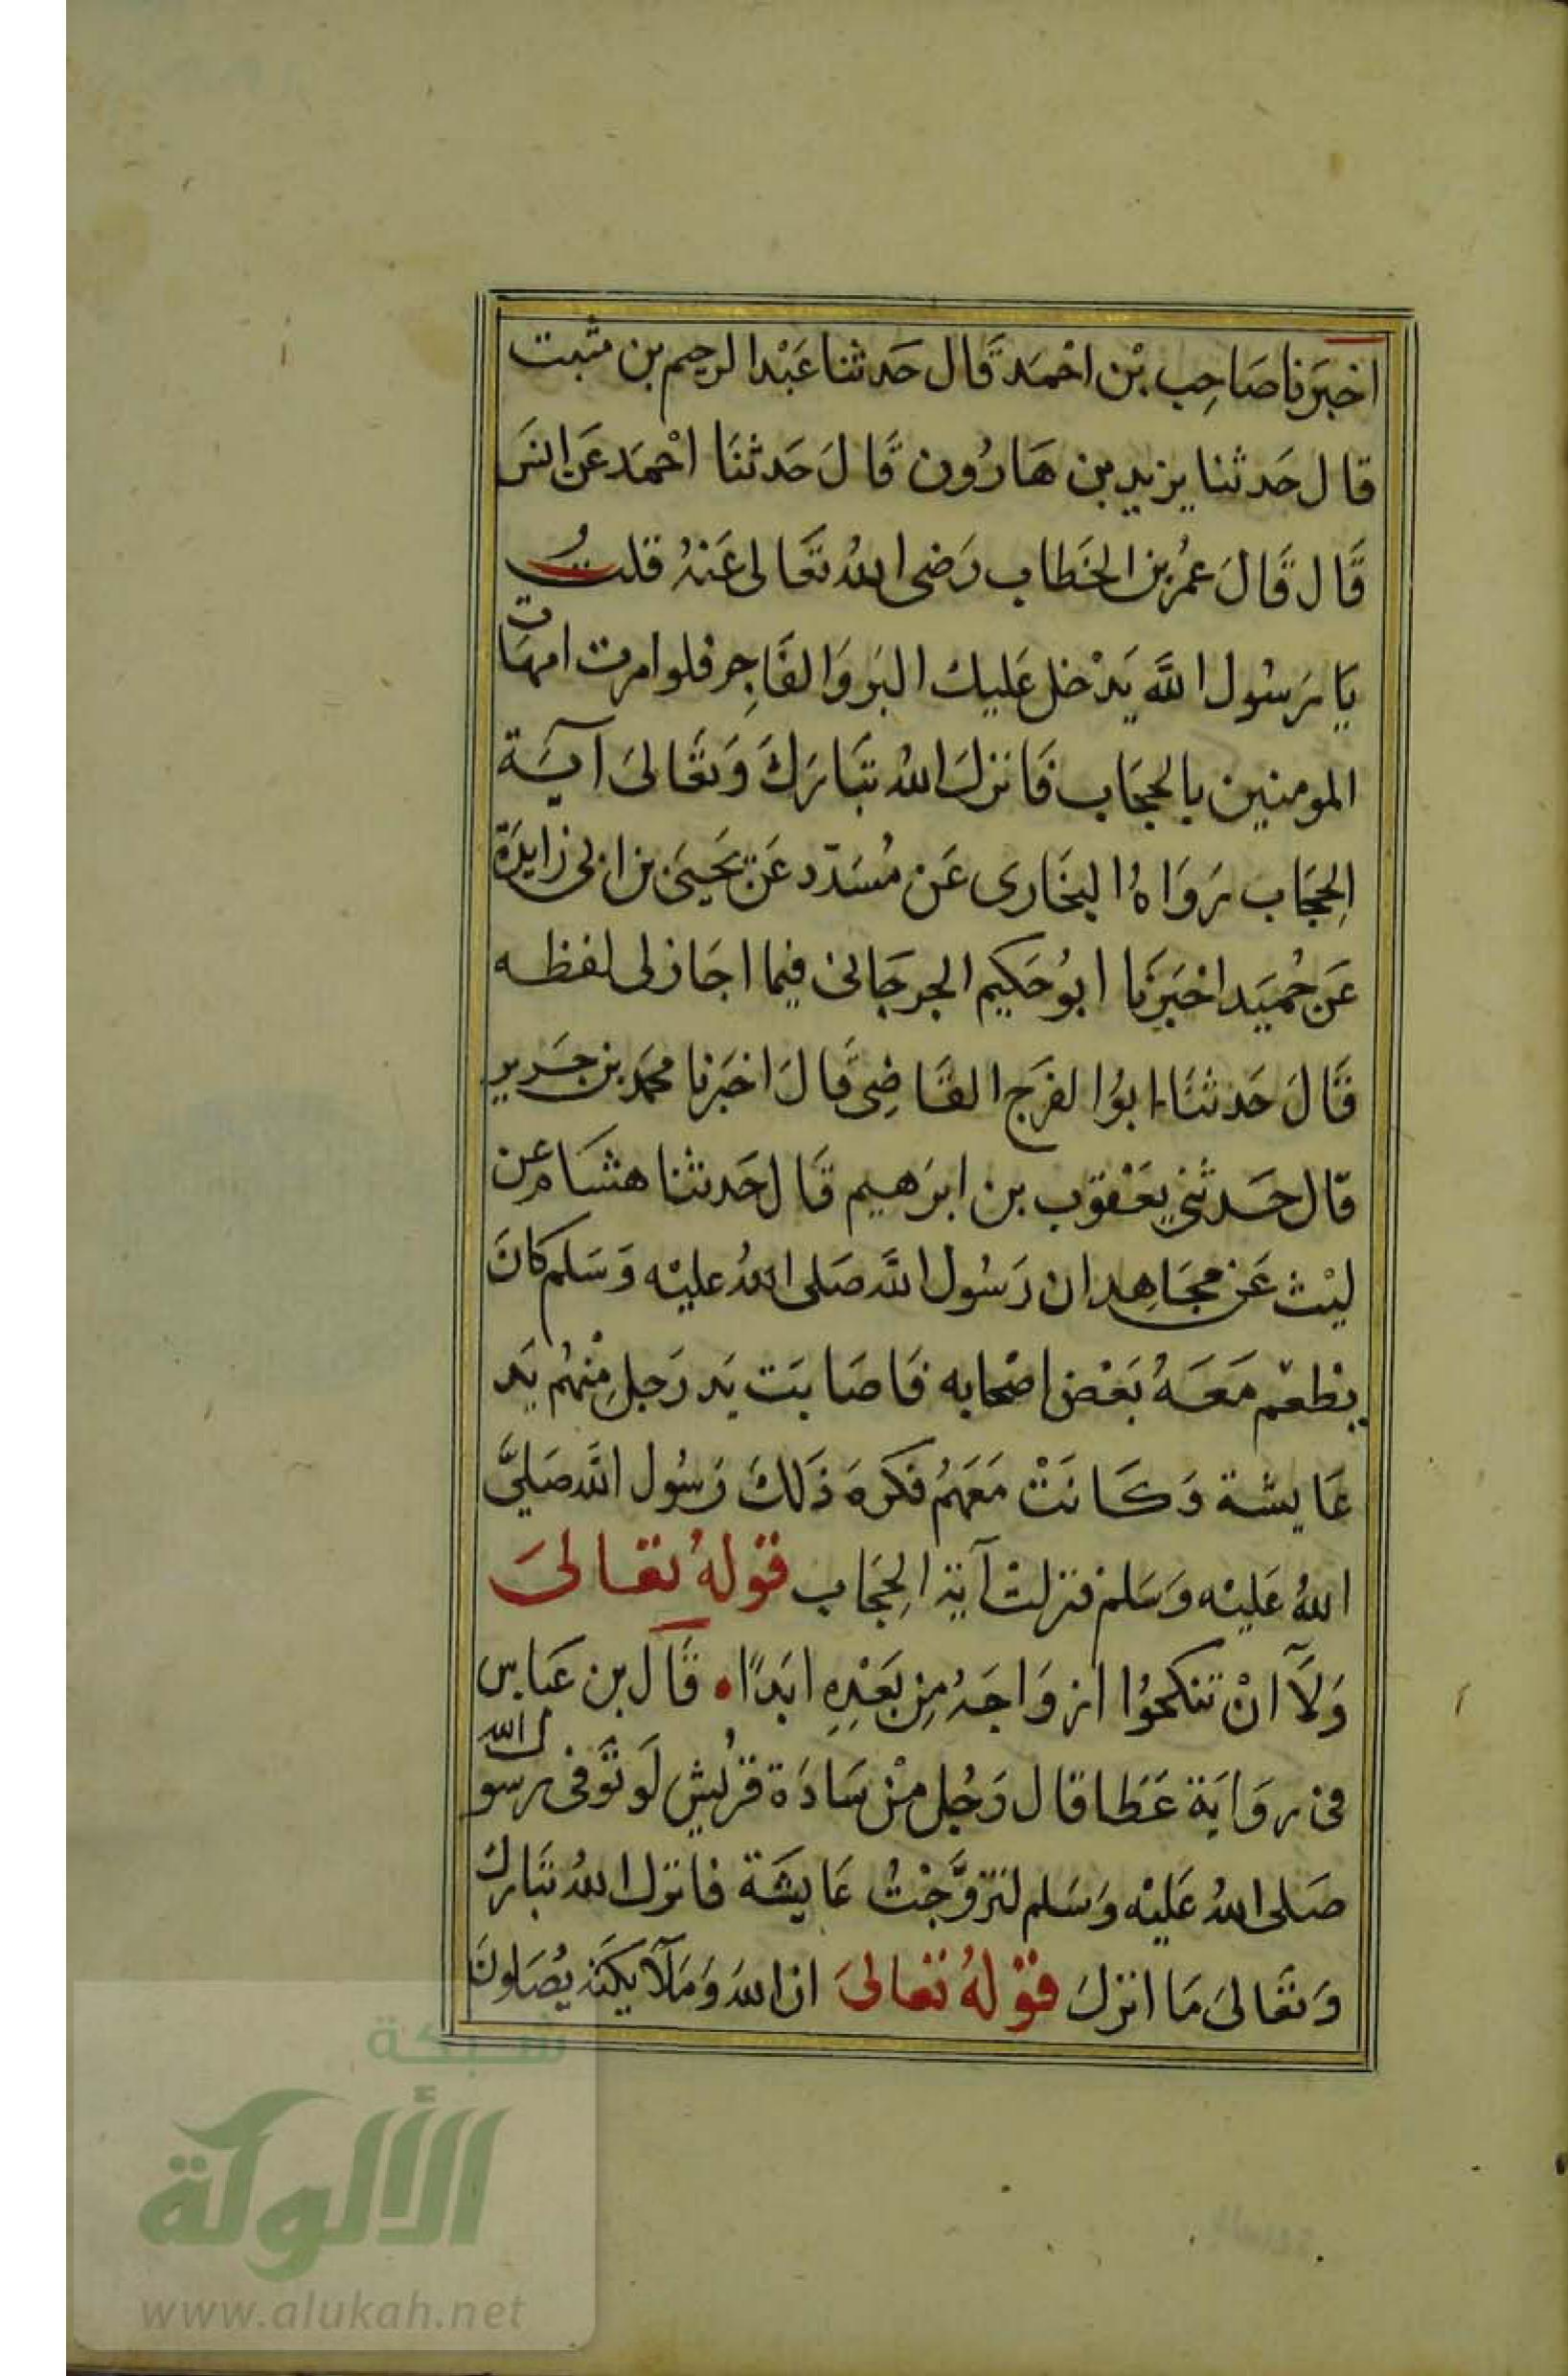 اخبَرنا صَاحِب بْن احْمَد قَال حَدثنا عَبْد الرحيم بن مثبت
قال حَدثنا يزيد بن هَارُون قَالَ حَدثنَا احْمَد عَن انسَ
قَال قَالَ عُمر بن الخَطاب رَضى اللهُ تعَالى عَنهُ قلتُ
يَا رَسُول اللَّه يَدْخل عَليك البَر وَالفَاجِر فلو امرت امهَات
المومنين بالحجَاب فَانزلَ اللهُ تبَارَكَ وَتعَالىَ آيَة
الحِجَاب رَوَاهُ البخَارى عَن مُسَدّد عَن يَحيىَ بن ابى زايدَة
عَن حُميَد اخْبَرنَا ابُو حَكيم الجرجَانى فيما اجَازلى لفظه
قَالَ حَدثنَا ابوُ الفَرَج القَاضِى قَالَ اخبَرنا محمَد بن جَرير
قال حَدثني يَعْقوب بن ابرَهيم قَال حَدثنا هشَام عن
ليْث عَن مجَاهِد ان رَسُول اللَّه صَلى اللهُ عليْه وَسَلم كانَ
يطعْم مَعَهُ بَعْض اصْحابه فَاصَابَت يَد رَجل مِنْهُم يَد
عَايشة وَكَانَتْ مَعَهُم فكرَهَ ذَلكَ رَسُول اللَّه صَلىَّ
اللهُ عَليْه وَسَلم فنزلتْ آية الحِجَاب قوْلهُ تعَالىَ
وَلَآ انْ تنكحوُا ازوَاجَهُ مِن بَعْدِهِ ابَدًا • قَال بن عَباس
فى روَايَة عَطَا قال رَجُل مِنْ سَادَة قرَيْش لَو تُوَفى رسول الله
صَلى اللهُ عَليْه وَسَلم لتزوَّجْتُ عَايشَة فانزل اللهُ تبَارك
وَتعَالىَ مَا انزلَ قوْلهُ تعَالىَ ان اللهَ وَمَلآيكتَه يُصَلونَ
شبكة
الألوكة
www.alukah.net